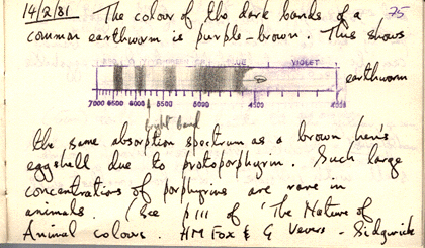 14/2/81 The colour of the dark bands of a 75
common earthworm is purple-brown. This shows
BLUE VIOLET
earthworm
7000 6500 6000 5500 5000 4500 4000
bright band
the same absorption spectrum as a brown hen's
eggshell due to protoporphyrin. Such large
concentrations of porphyrins are rare in
animals. (See p 111 of 'The Nature of
Animal colours. HM Fox & G Vevers - Sidgwick